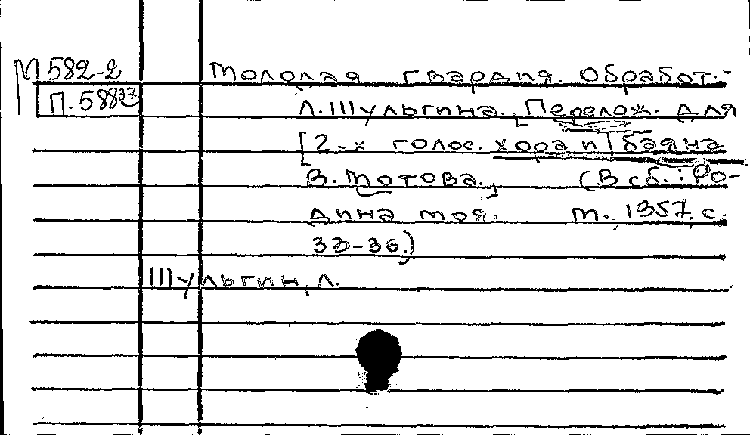 М 582-2
П. 58833
Молодая гвардия. Обработ.
Л. Шульгина. Перелож. для
[2-х голос. хора и] баяна
В. Мотова. (В сб.: Ро-
дина моя. М., 1957, с.
33-36.)
Шульгин, Л.